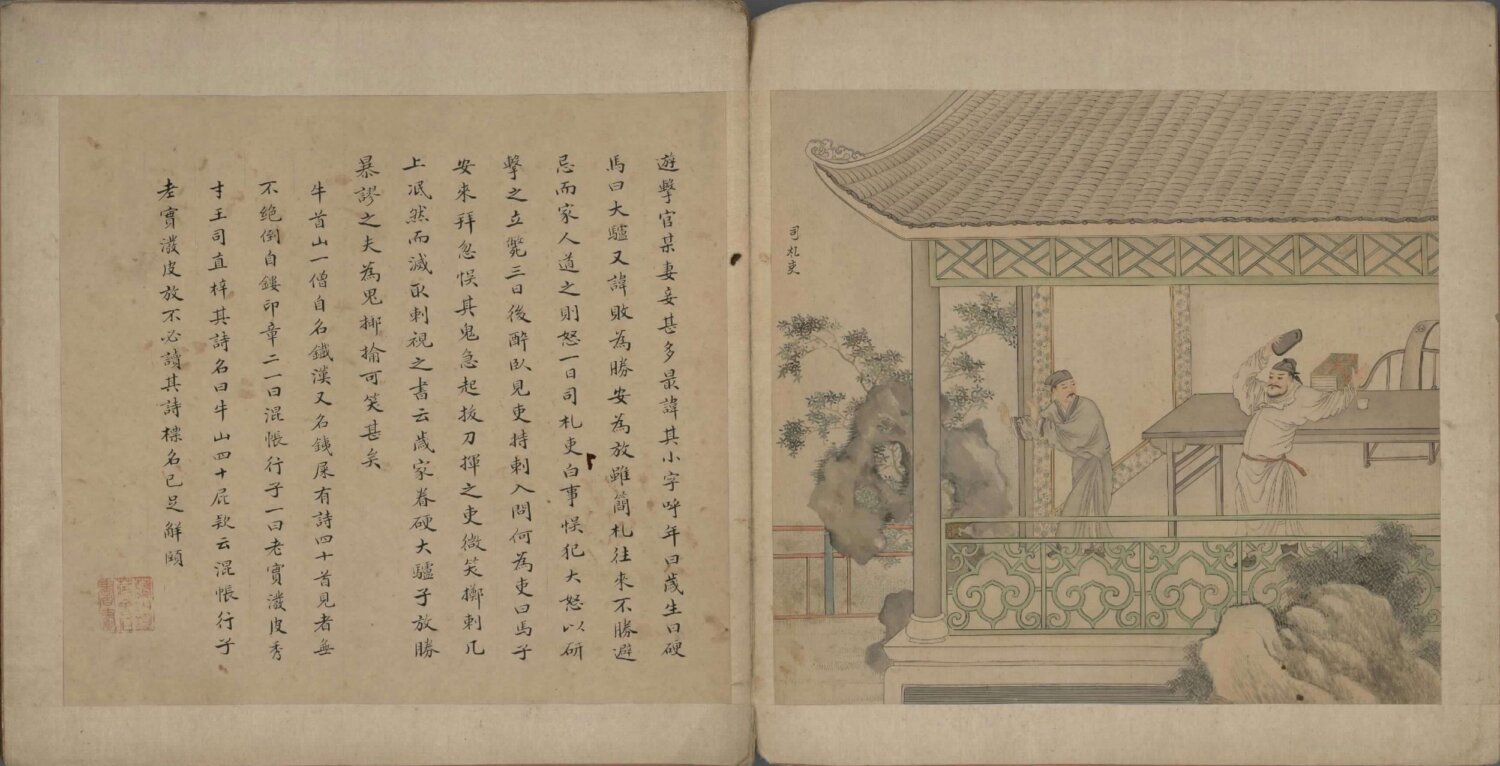 司札吏
遊擊官某妻妾甚多最諱其小字呼年曰歲生曰硬
馬曰大驢又諱敗為勝安為放雖簡札往來不勝避
忌而家人道之則怒一日司札吏白事悞犯大怒以研
擊之立斃三日後醉臥見吏持刺入問何為吏曰馬子
安來拜忽悮其鬼急起拔刀揮之吏微笑擲刺几
上泯然而滅取刺視之書云歲家眷硬大驢子放勝
暴謬之夫為鬼揶揄可笑甚矣
牛首山一僧自名鐵漢又名銕屎有詩四十首見者無
不絕倒自鏤印章二一曰混帳行子一曰老實潑皮秀
才王司直梓其詩名曰牛山四十屁款云混帳行子
老實潑皮放不必讀其詩標名已足解頤